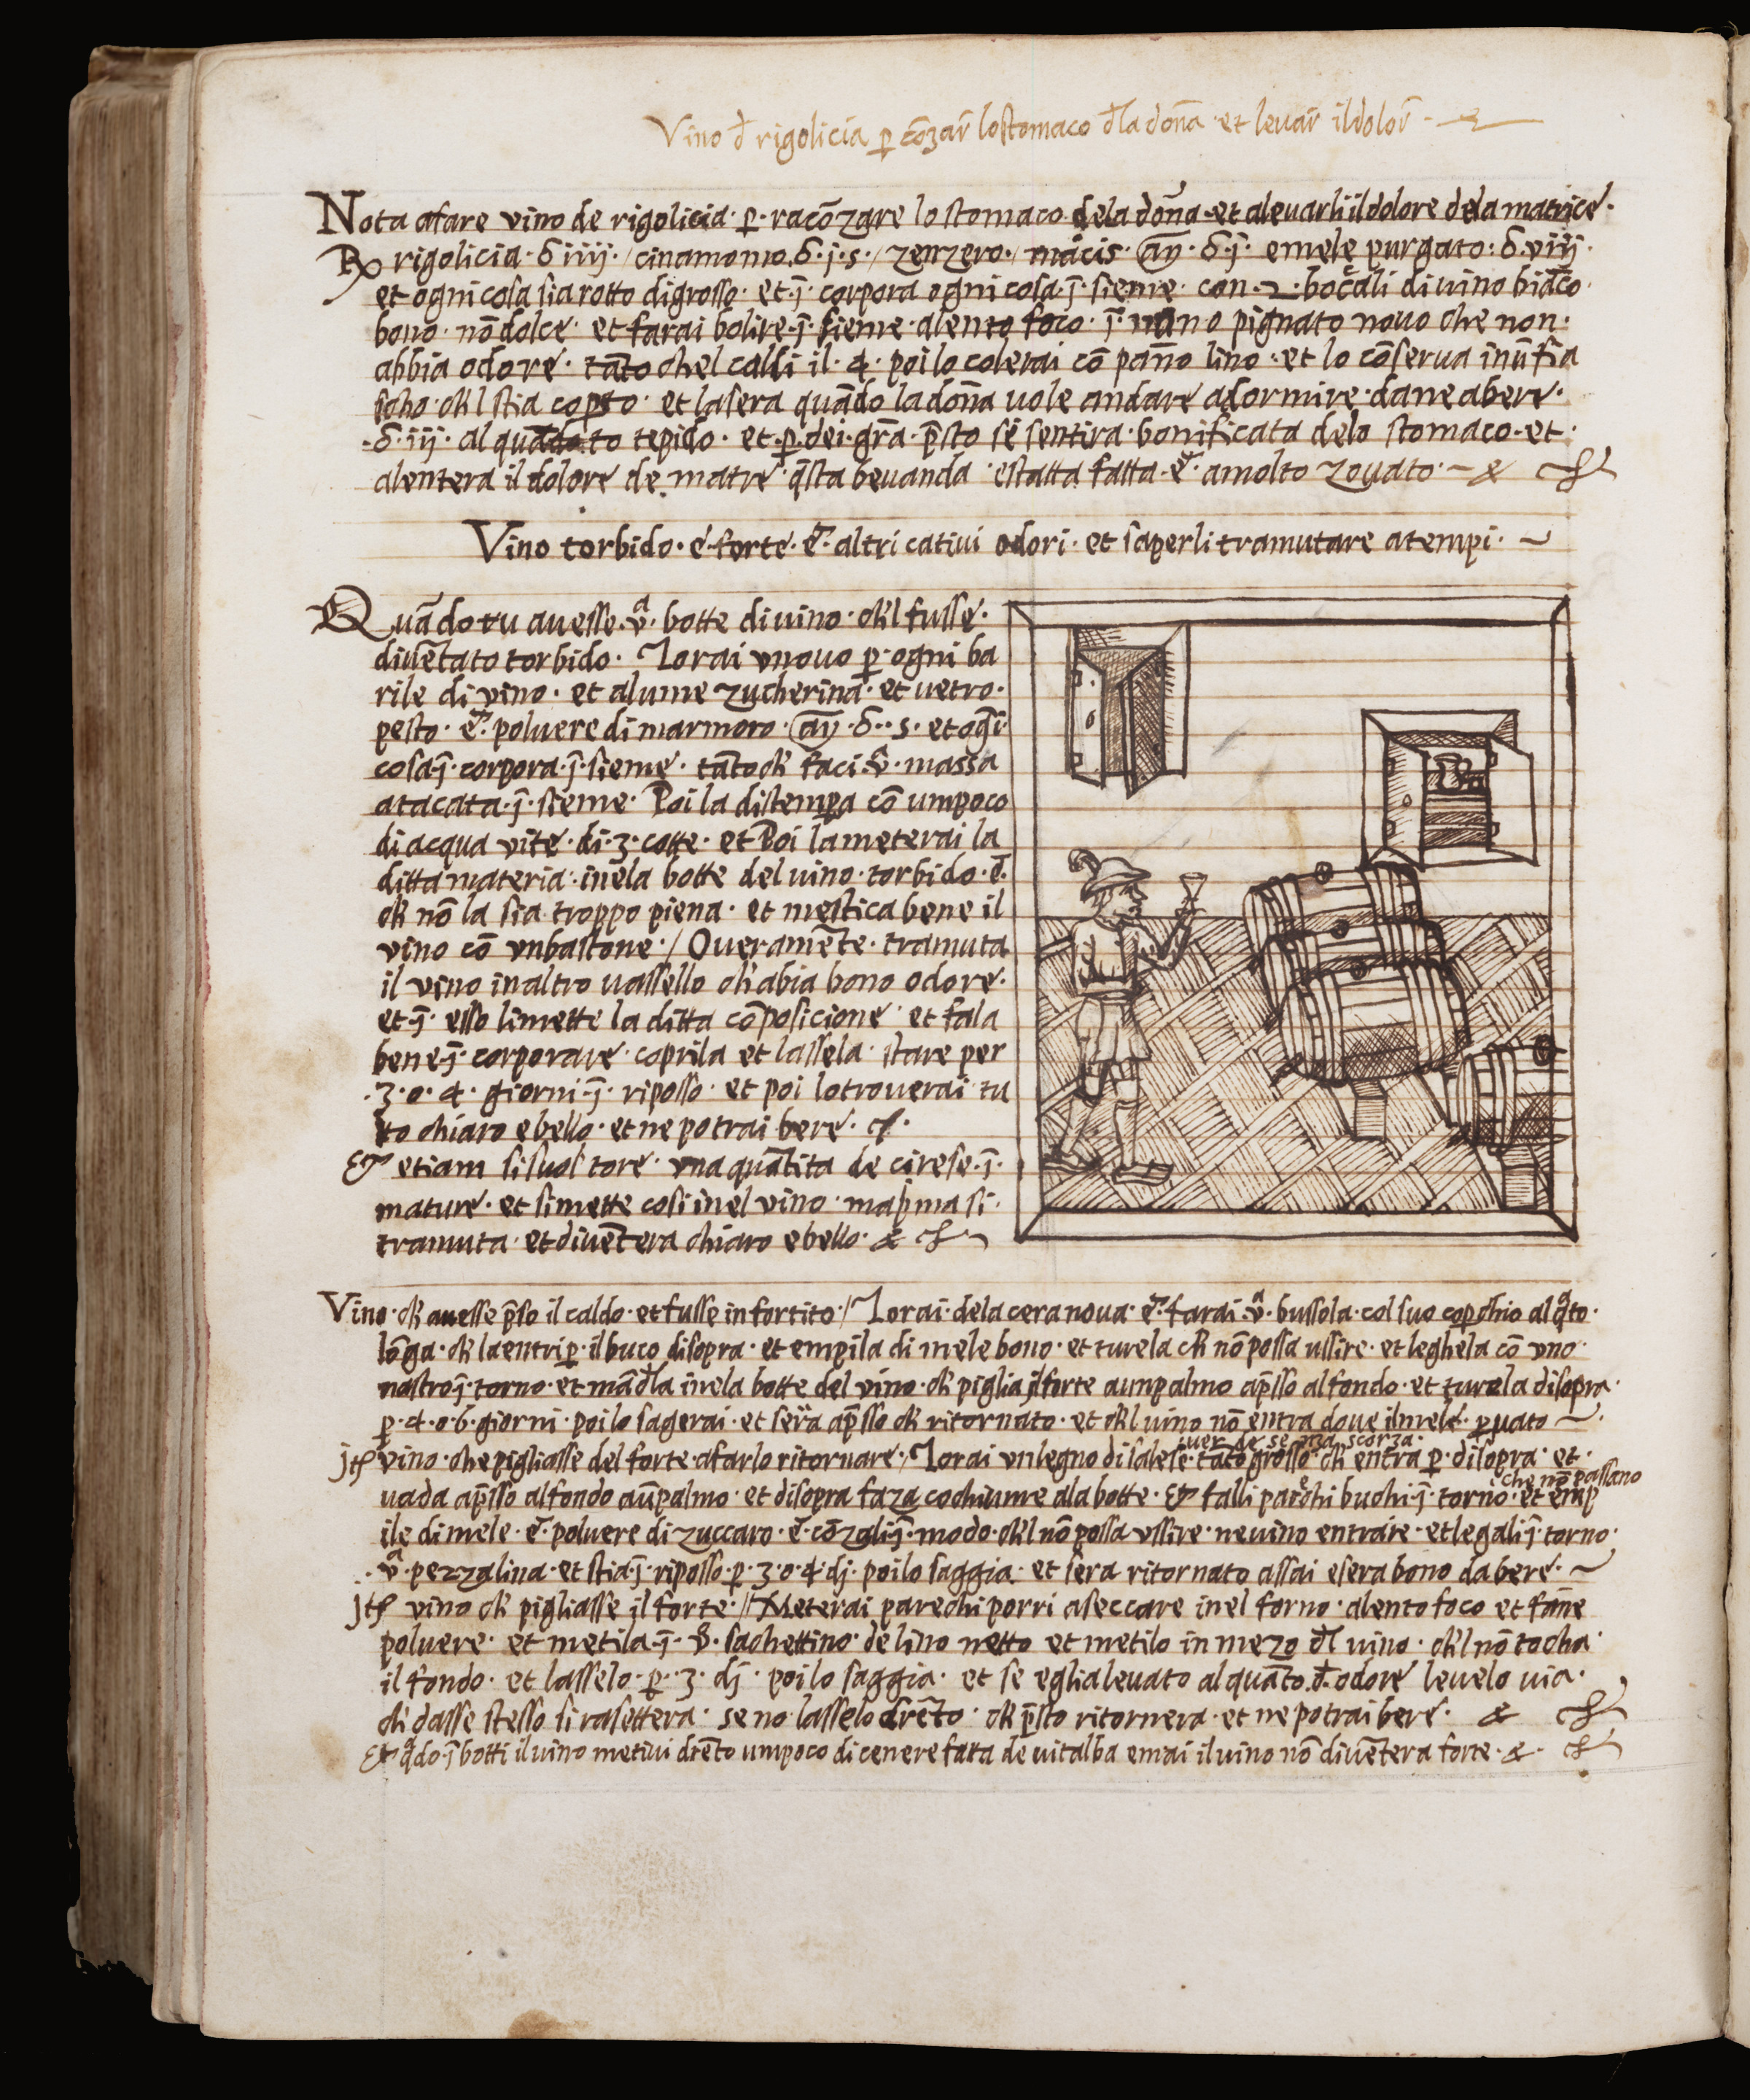 Vino đ rigolicia ꝑ cōzar̄ lo stomaco đla doña et leuar̄ il dolor̄
Nota afare vino de rigolicia· ꝑ· racōzare lo stomaco dela doña· et aleuarli il dolore dela matrice·
℞ rigolicia· δ iiij· / cinamomo· δ· j· s· / zenzero· / macis· aȳ· δ· j· emele purgato: δ· viij·
et ogni cosa sia rotto digrosso· et· j̄· corpora ogni cosa· j̄· sieme· con· 2· bocali di uino biāco·
bono· nō dolce· et farai bolire· j̄· sieme· alento foco· j̄· uno pignato nouo che non·
abbia odore· tāto chel calli il· 4· poi lo colerai cō pañō lino· et lo cōserua in ū fia
scho· ch'l stia copto· et la sera quādo la doña uole andare adormire· dane abere·
· δ· iij· al quāto tepido· et· ꝑ· dei· grā· p̄sto se sentira· bonificata delo stomaco· et·
alentera il dolore de matre· q̄sta beuanda· e statta fatta· et· a molto zouato·
Vino torbido· e forte· et· altri catiui odori· et saperli tramutare atempi·
Quādo tu auesse· vᵃ· botte di uino· ch'l fusse·
diuētato torbido· Torai vnouo ꝑ· ogni ba
rile di vino· et alume zucherina· et uetro·
pesto· et· poluere di marmoro· aȳ· δ·· s· et og̅i·
cosa· j̄· corpora· j̄· sieme· tāto ch' faci· vᵃ· massa
atacata· j̄· sieme· Poi la distempa cō umpoco
di acqua vite· di· 3· cotte· et Poi la meterai la
ditta materia· inela botte del uino· torbido· et·
ch' nō la sia troppo piena· et mestica bene il
vino cō vnbastone· / Oueramēte· tramuta
il vino in altro uassello ch' abia bono odore·
et· j̄· esso li mette la ditta cōposicione· et fala
bene· j̄· corporare· coprila et lassela· stare per
· 3· o· 4· giorni· j̄· riposso· et poi lo trouerai tu
to chiaro e bello· et ne potrai bere·
et etiam si suol tore· vna quātita de cirese· j̄·
mature· et si mette cosi inel vino· ma p̄ma si·
tramuta· et diuētera chiaro e bello· &
Vino· ch' auesse p̄so il caldo· et fusse infortito· / Torai· dela cera noua· et· farai· vᵃ· bussola· col suo copchio al q̄to·
lōga· ch' la entri ꝑ· il buco disopra· et empila di mele bono· et turela ch' nō possa ussire· et leghela cō vno·
nastro· j̄· torno· et māđla inela botte del vino· ch' piglia il forte aunpalmo ap̄sso al fondo· et turela disopra·
ꝑ· 4· o 6· giorni· poi lo sagerai· et sera ap̄sso ch' ritornato· et ch'l uino nō entra doue il mele· ꝓuato
jtē vino· che pigliasse del forte· afarlo ritornare· / Torai vn legno di salese· tāto grosso ch' entra ꝑ· disopra· et·
uer de se nza scorza·
uada ap̄sso al fondo aūpalmo· et disopra faza cochiume ala botte· et falli parechi buchi· j̄· torno· et emp
che nō passano
ile di mele· et· poluere di zuccaro· et· cōzali· j̄· modo· ch'l nō possa vssire· ne uino entrare· et legali j̄· torno·
· vᵃ· pezzalina· et stia· j̄· riposso· ꝑ· 3· o· 4· dj· poi lo saggia· et sera ritornato assai e sera bono da bere·
jtē vino ch' pigliasse il forte· // Meterai parechi porri aseccare inel forno· alento foco et fañe
poluere· et metila· j̄· vº· sachettino· de lino netto et metilo in mezo đl uino· ch'l nō tocha·
il fondo· et lasselo· ꝑ· 3· dj· poi lo saggia· et se egli a leuato al quāto· đ· odore leuelo uia·
ch' dasse stesso si rasettera· se no lasselo drēto· ch' p̄sto ritornera· et ne potrai bere· &
et qᵃdo· j̄ botti il uino metiui drēto umpoco di cenere fatta de uitalba e mai il uino nō diuētera forte· &